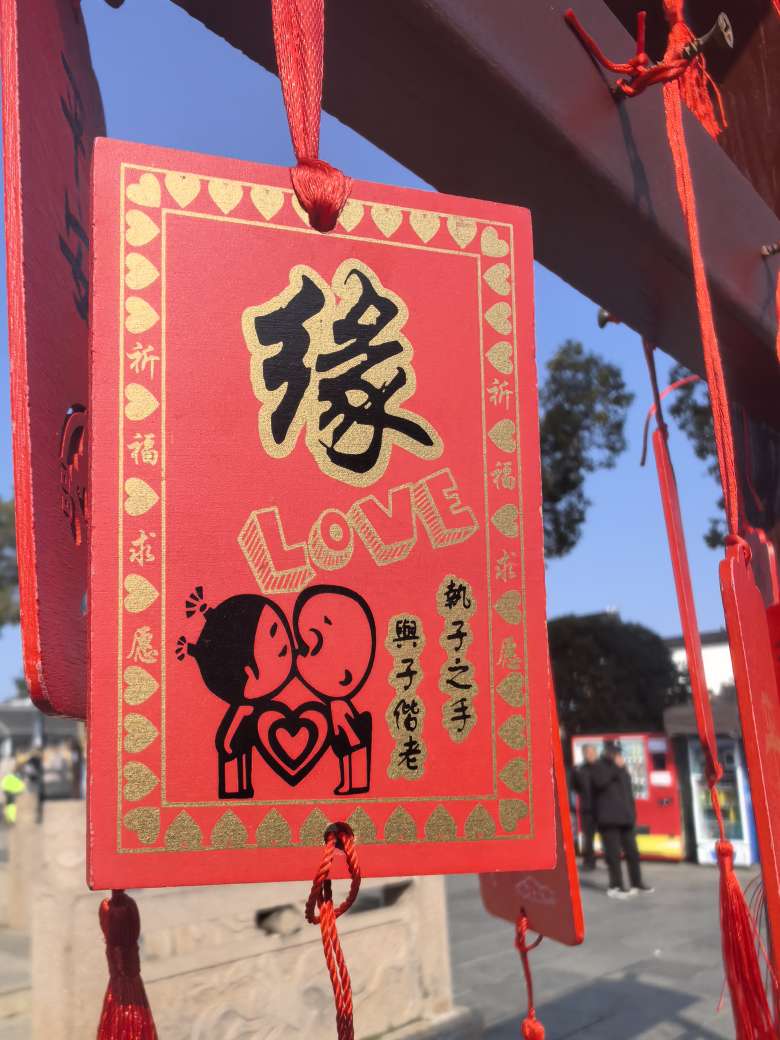 缘
LOVE
執子之手
與子偕老
祈福求愿
祈福求愿